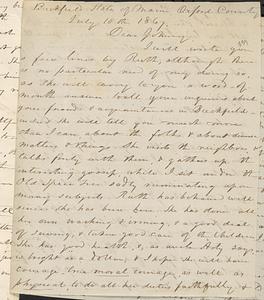 Buckfield State of Maine Oxford County
July 10th 1867.
Dear Johnny
I will write you
a few lines by Ruth, although there
is no particular need of my doing so,
as she will carry to you a word of
mouth all your inquiries about
your friends & acquaintances in Buckfield
indeed she will tell you much more
than I can, about the folks & about
matters & things. She visits the neighbors, &
talks with them, & gathers up the
interesting gossip, while I sit under the
Old Tree sadly ruminating upon
many subjects. Ruth has behaved well
since she has been here. She has done all
her own washing & ironing, & a good deal
of sewing, & taken good care of the children
She has good health, &, as says,
is bright as a dollar, & I hope she will have
courage, moral courage, as well as
physical, to do all her duties faithfully, &